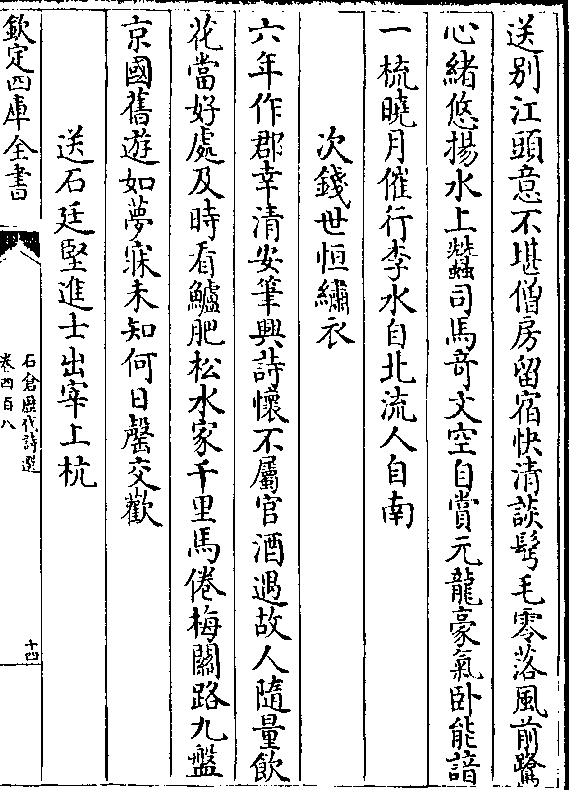 送别江頭意不堪僧房留宿快清談髩毛零落風前鷺
心緒悠揚水上蠶司馬竒文空自賞元龍豪氣卧能諳
一梳曉月催行李水自北流人自南
次錢世恒繡衣
六年作郡幸清安筆興詩懷不屬官酒遇故人隨量飲
花當好處及時看鱸肥松水家千里馬倦梅關路九盤
京國舊遊如夢寐未知何日罄交歡
送石廷堅進士出宰上杭
欽定四庫全書
石倉歴代詩選
卷四百八
十四